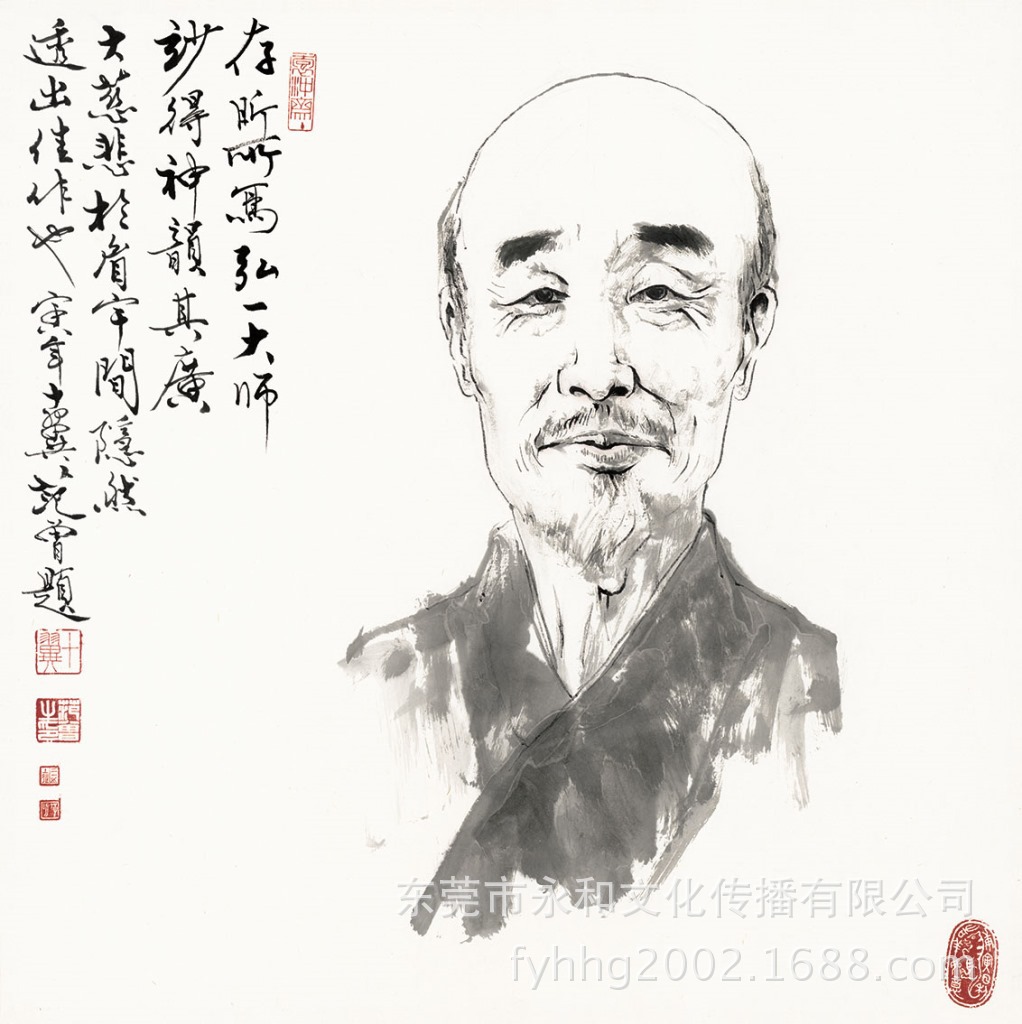 存昕所写弘一大师
妙得神韻其廣
大慈悲於眉宇間隱然
透出佳作也 寅年 十翼范曾題
十翼
东莞市永和文化传播有限公司
fyhhg2002.1688.com